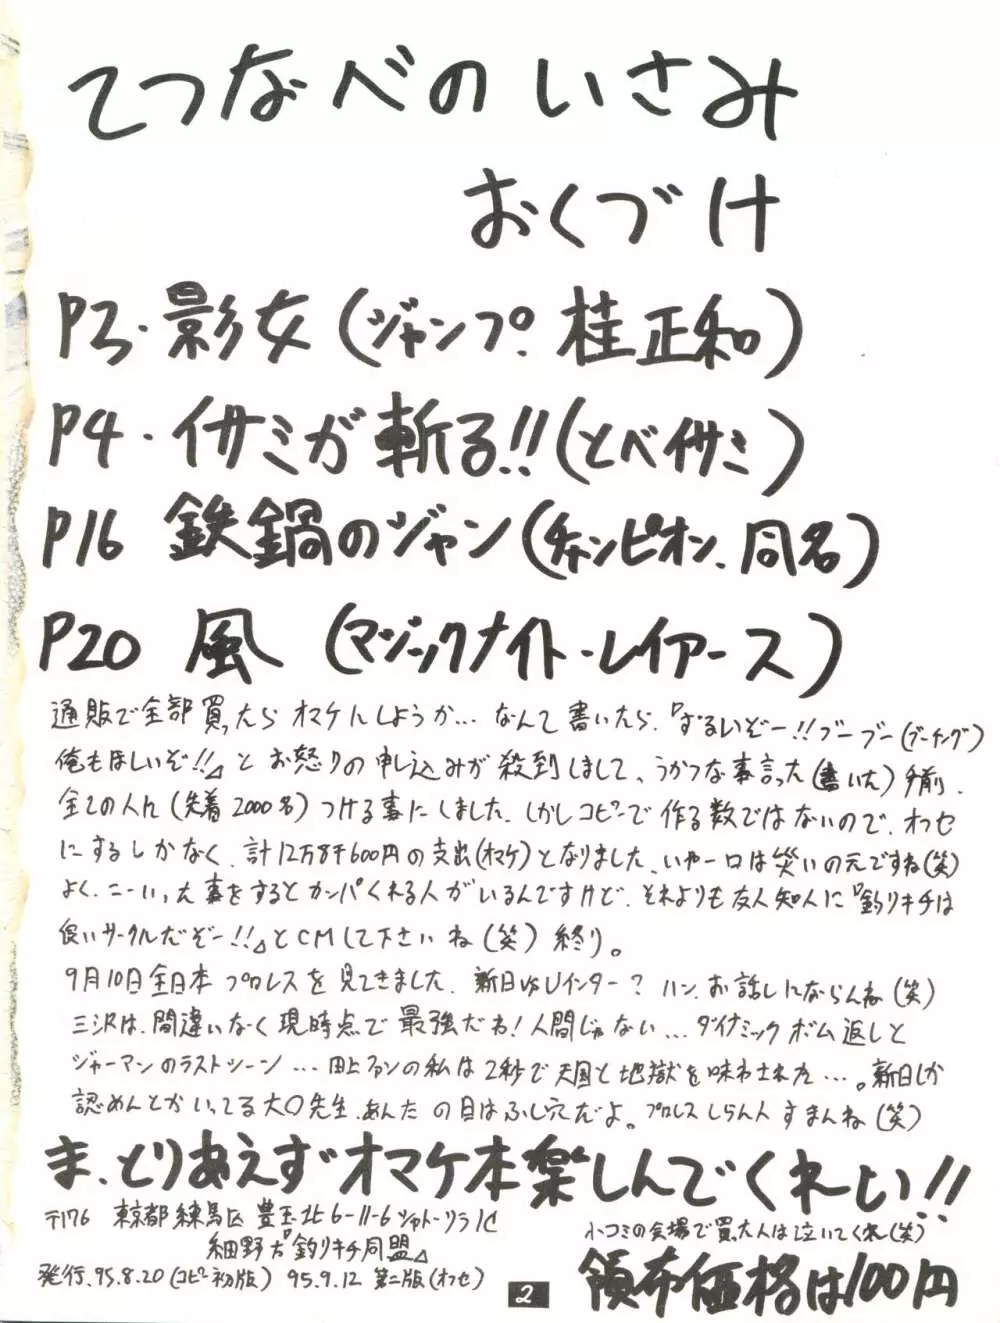 てつなべのいさみ
おくづけ
P3・影女(ジャンプ.桂正和)
P4・イサミが斬る!!(とべイサミ)
P16 鉄鍋のジャン(チャンピオン、同名)
P20 風 (マジックナイト・レイアース)
通販で全部買ったらオマケにしようか…なんて書いたら、『ずるいぞー!!ブーブー(ブーイング)
俺もほしいぞ!!』とお怒りの申し込みが殺到しまして、うかつな事言った(書いた)手前、
全ての人に(先着2000名)つける事にしました。しかしコピーで作る数ではないので、オフセ
にするしかなく、計12万8千600円の支出(オマケ)となりました、いやー口は災いの元ですね(笑)
よく、こーいった事をするとカンパくれる人がいるんですけど、それよりも友人知人に『釣りキチは
良いサークルだぞー!!』とCMして下さいね(笑)終り。
9月10日全日本プロレスを見てきました、新日vsUインター?ハン、お話しにならんね(笑)
三沢は、間違いなく現時点で最強だね!人間じゃない…ダイナミックボム返しと
ジャーマンのラストシーン…田上ファンの私は2秒で天国と地獄を味わされた…。新日しか
認めんとかいってる大〇先生、あんたの目はふし穴だよ。プロレスしらん人すまんね(笑)
ま、とりあえずオマケ本楽しんでくれーい!!
〒176 東京都練馬区豊玉北6-11-6シャトーソラ1C
細野方『釣りキチ同盟』
発行.95.8.20(コピー初版) 95.9.12 第二版(オフセ)
小コミの会場で買った人は泣いてくれ(笑)
領布価格は100円
2